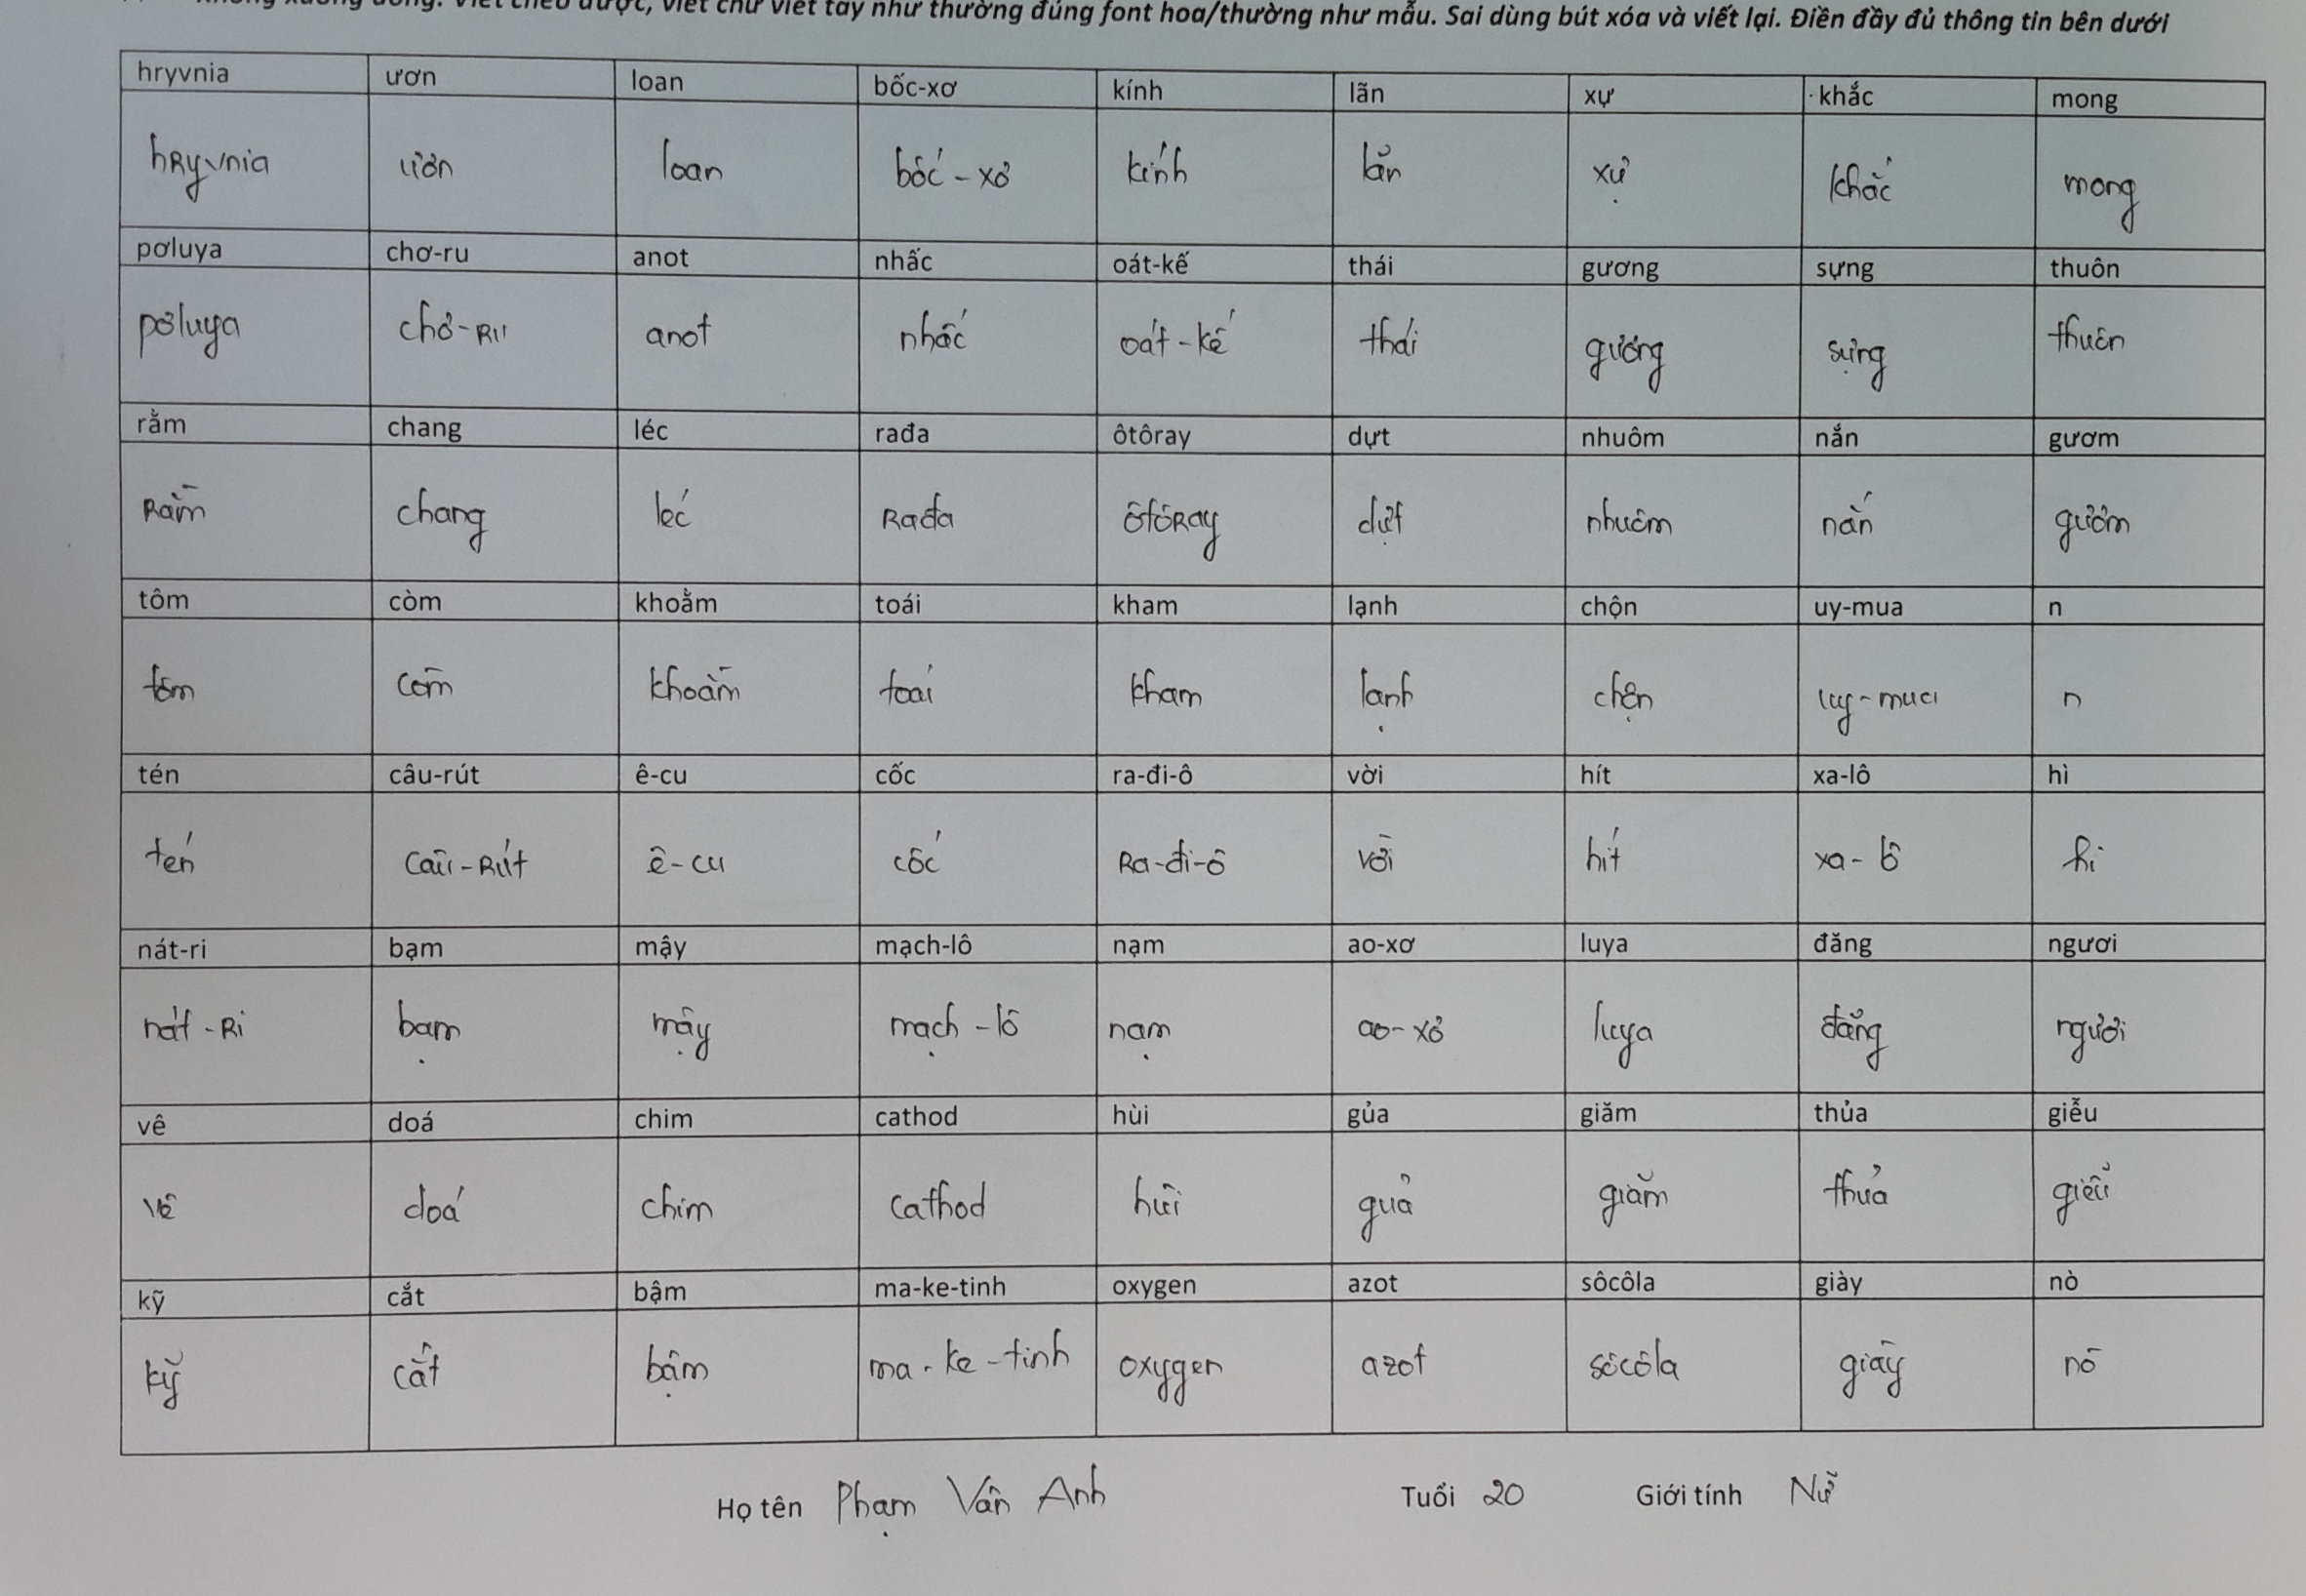 viết chữ viết tay như thường đúng font hoa/thường như mẫu. Sai dùng bút xóa và viết lại. Điền đầy đủ thông tin bên dưới
hryvnia ươn loan bốc-xơ kính lãn xự khắc mong
hRyvnia ươn loan bốc-xơ kính lãn xự khắc mong
pơluya chơ-ru anot nhấc oát-kế thái gương sựng thuôn
pơluya chơ-Ru anot nhấc oát-kế thái gương sựng thuôn
rằm chang léc rađa ôtôray dựt nhuôm nắn gươm
Rằm chang léc Rađa ôtôRay dựt nhuôm nắn gươm
tôm còm khoằm toái kham lạnh chộn uy-mua n
tôm còm khoằm toái kham lạnh chộn uy-mua n
tén câu-rút ê-cu cốc ra-đi-ô vời hít xa-lô hì
tén câu-Rút ê-cu cốc Ra-đi-ô vời hít xa-lô hì
nát-ri bạm mậy mạch-lô nạm ao-xơ luya đăng ngươi
nát-Ri bạm mậy mạch-lô nạm ao-xơ luya đăng ngươi
vê doá chim cathod hùi gủa giăm thủa giễu
vê doá chim cathod hùi gủa giăm thủa giễu
kỹ cắt bậm ma-ke-tinh oxygen azot sôcôla giày nò
kỹ cắt bậm ma-ke-tinh oxygen azot sôcôla giày nò
Họ tên Phạm Vân Anh Tuổi 20 Giới tính Nữ